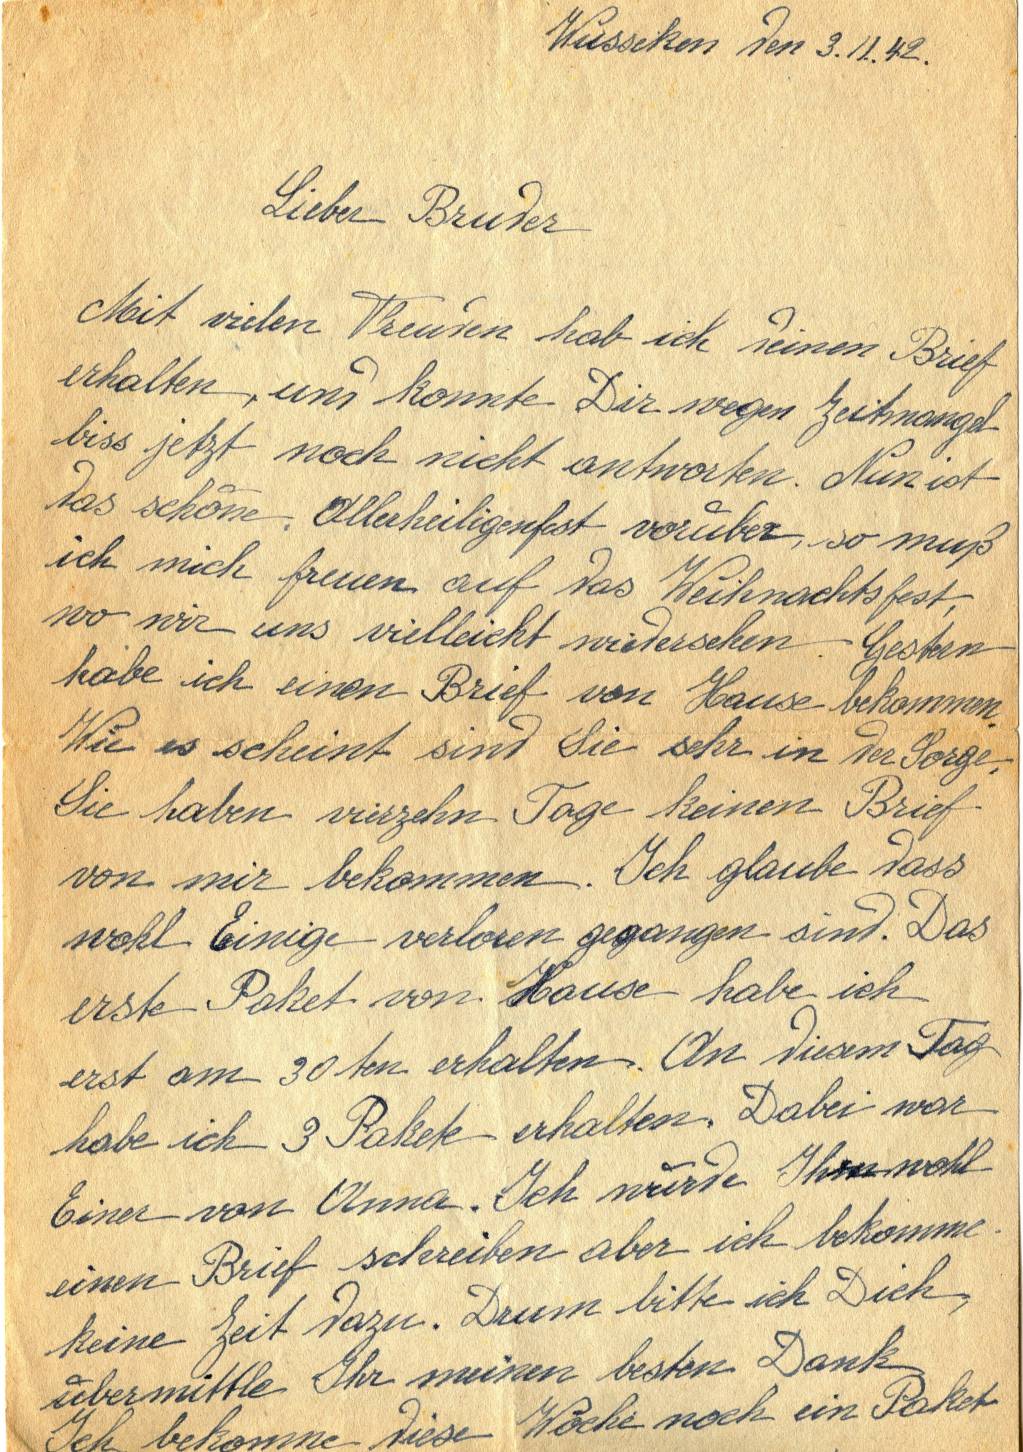 Wusseken den 3.11.42.
Lieber Bruder
Mit vielen Freuden hab ich deinen Brief
erhalten, und konnte Dir wegen Zeitmangel
biss jetzt noch nicht antworten. Nun ist
das schöne Allerheiligenfest vorüber, so muß
ich mich freuen auf das Weihnachtsfest,
wo wir uns vielleicht wiedersehen. Gestern
habe ich einen Brief von Hause bekommen.
Wie es scheint sind Sie sehr in der Sorge.
Sie haben vierzehn Tage keinen Brief
von mir bekommen. Ich glaube dass
wohl Einige verloren gegangen sind. Das
erste Paket von Hause habe ich
erst am 30ten erhalten. An diesem Tag
habe ich 3 Pakete erhalten. Dabei war
Einer von Anna. Ich würde wohl
einen Brief schreiben aber ich bekomme
keine Zeit dazu. Drum bitte ich Dich,
übermittle Ihr meinen besten Dank
Ich bekomme diese Woche noch ein Paket